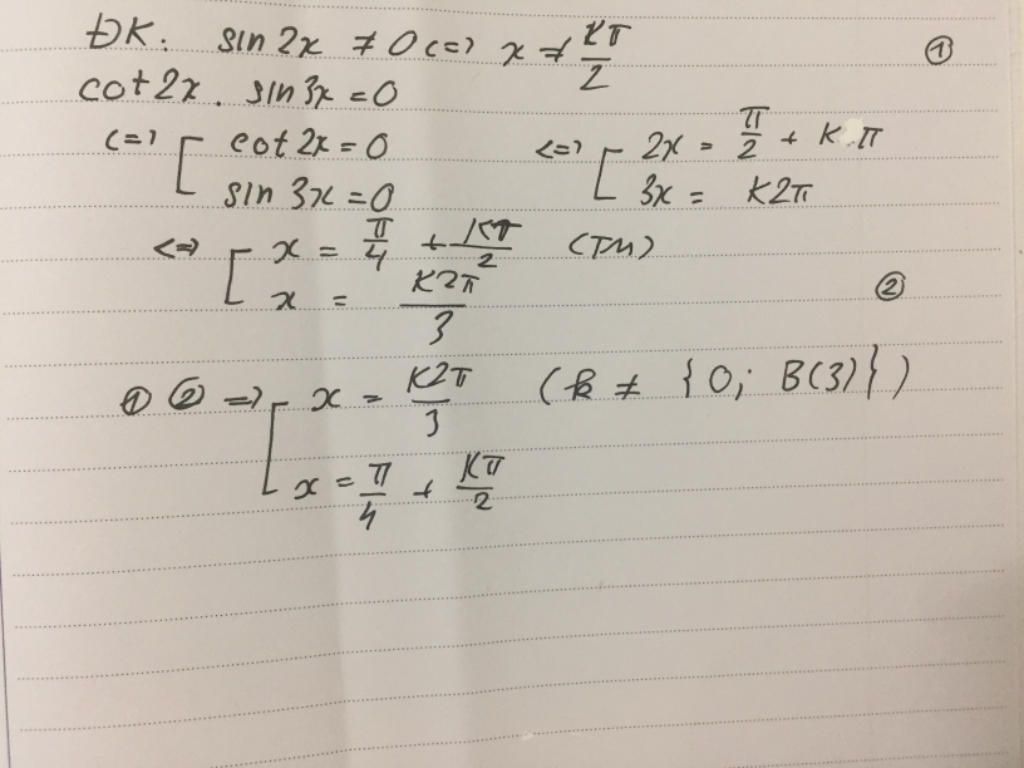 ĐK: sin 2x ≠ 0 <=> x ≠ kπ/2 ①
cot 2x . sin 3x = 0
<=> [ cot 2x = 0 <=> [ 2x = π/2 + kπ
sin 3x = 0 3x = k2π
<=> [ x = π/4 + kπ/2 (TM)
x = k2π/3 ②
① ② => [ x = k2π/3 (k ≠ {0; B(3)})
x = π/4 + kπ/2